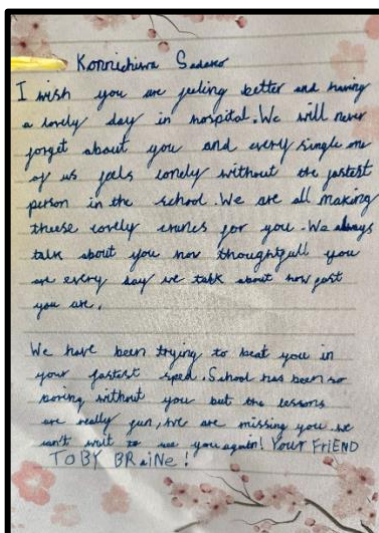 Konnichiwa Sadako
I wish you are feeling better and having
a lovely day in hospital. We will never
forget about you and every single one
of us feels lonely without the fastest
person in the school. We are all making
theese lovely cranes for you. We always
talk about you how thoughtfull you
are every day we talk about how fast
you are.
We have been trying to beat you in
your fastest sped. School has been so
boring without you but the lessons
are really fun. We are missing you we
can't wait to see you again! YOUR FRiEND
TOBY BRaiNe!